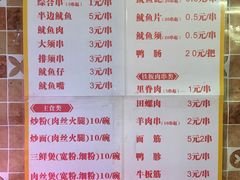 综合串 1元/串
半边鱿鱼 5元/串
鱿鱼肉 3元/串
大须串 3元/串
排须串 3元/串
鱿鱼仔 3元/串
鱿鱼嘴 3元/串
主食类
炒粉(肉丝火腿)10/碗
炒面(肉丝火腿)10/碗
三鲜煲(宽粉.细粉)10/碗
肉丝煲(宽粉.细粉)10/碗
鱿鱼片 5元/串
鱿鱼须 5元/串
鸭肠 20元/把
铁板肉串类
里脊肉 1元/串
田螺肉 3元/串
羊肉串 2元/串
面筋 5元2串
鸭胗 3元/串
牛板筋 3元/串